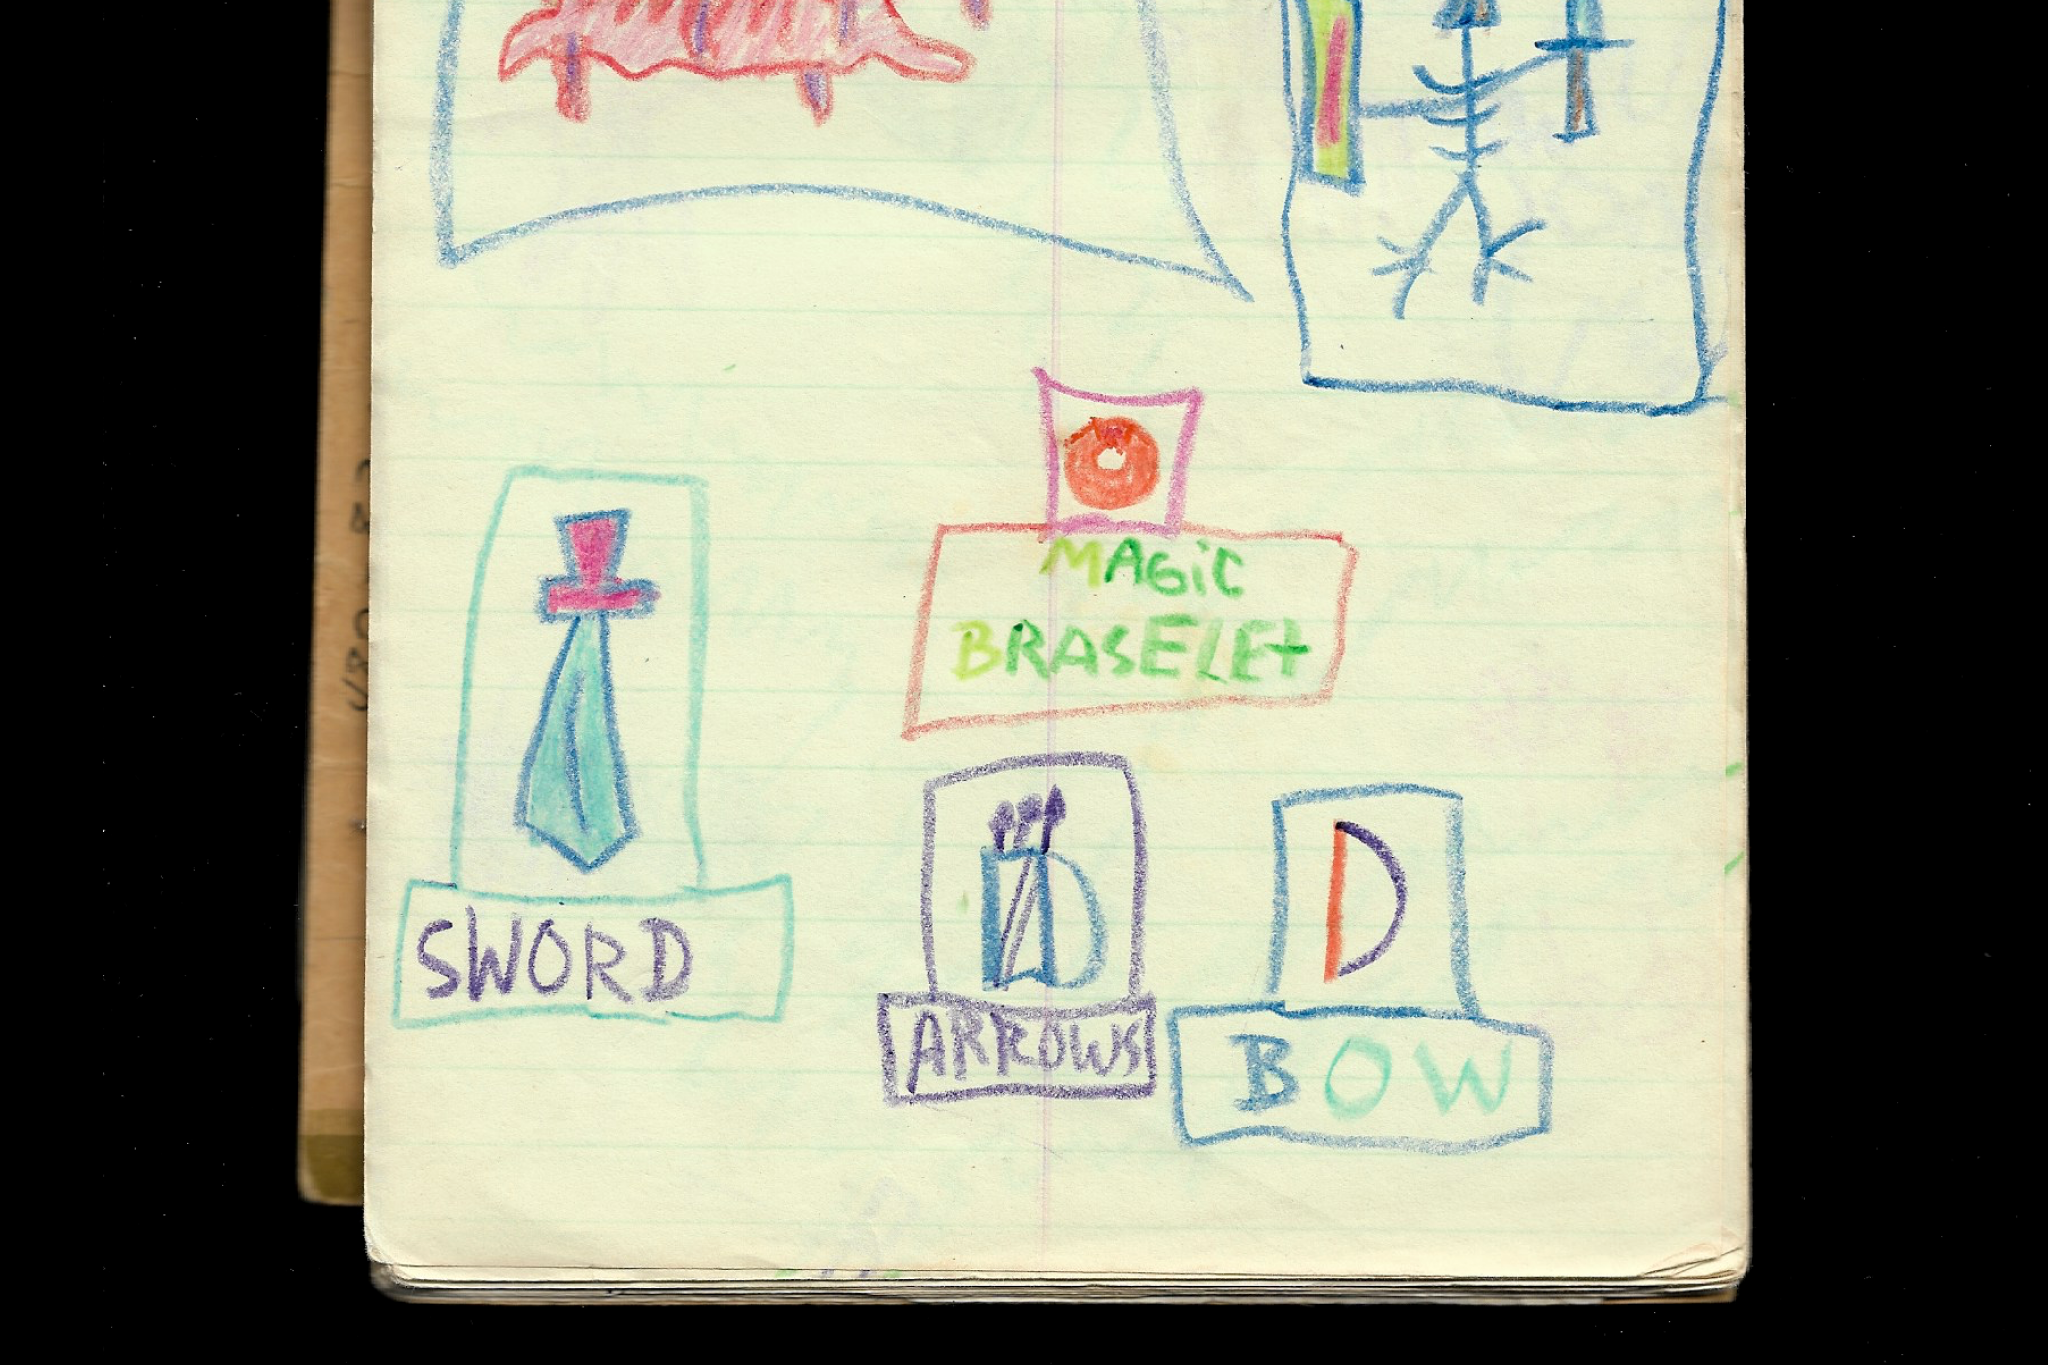 MAGiC
BRASELEt
SWORD
ARROWS
BOW